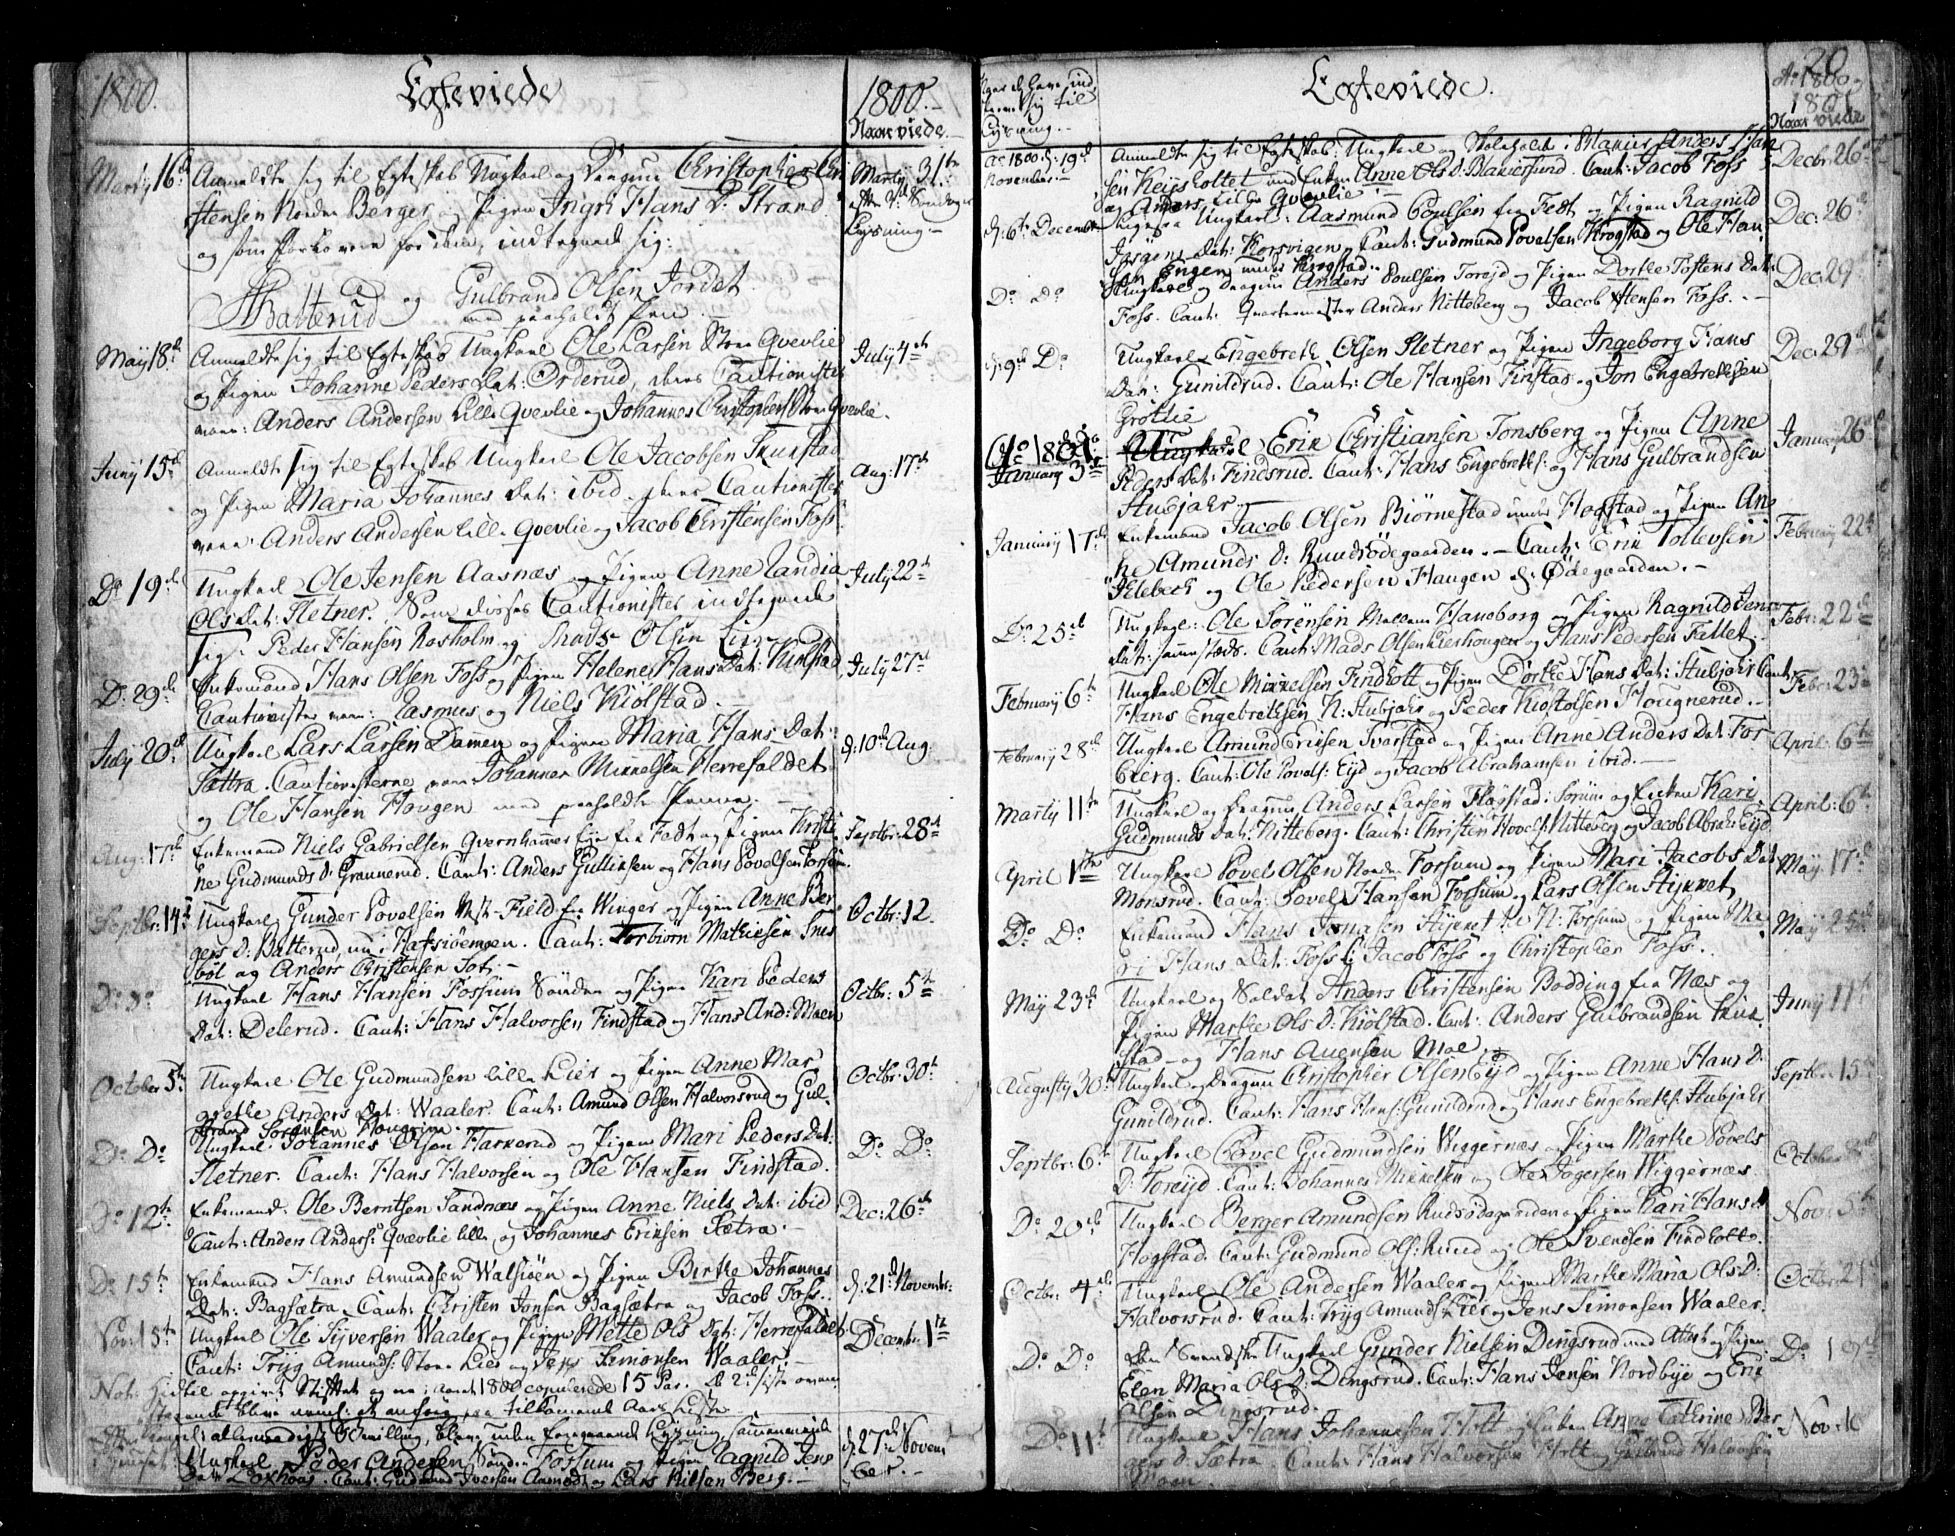 1800.
Egteviede
1800.
Naar viede.
Martÿ 16de
Anmeldte sig til Egteskab Ungkarl og Dragun Christopher Chri
stensen Nordre Berger og Pigen Ingri Hans D: Strand
og som Forlovere for dem, indtegnede sig:
Martÿ 31te
efter 3de Søndages
Lysning.
Batterud og Gulbrand Olsen Jordet
med paaholdt Pen.
Maÿ 18de
Anmeldte sig til Egteskab Ungkarl Ole Larsen Store Qvevlie
og Pigen Johanne Peders Dat: Orderud, deres Cautionister
vare: Anders Andersen Lille Qvevlie og Johannes Christophers: Store Qvevlie.
July 4de
Junÿ 15de
Anmeldte sig til Egteskab Ungkarl Ole Jacobsen Skurstad
og Pigen Maria Johannes Dat: ibid. deres Cautionister
vare: Anders Andersen Lille Qvevlie og Jacob Christensen Foss.
Aug: 17de
Do 19de
Ungkarl Ole Jensen Aasnæs og Pigen Anne Candia
Ols Dat: Sletner. Som disses Cautionister indtegnede
sig: Peder Hansen Nasholm og Mads Olsen Lier
July 22de
D: 29de
Enkemand Hans Olsen Foss og Pigen Helene Hans Dat: Kiølstad
Cautionister vare: Rasmus og Niels Kiølstad.
July 27de
Julÿ 20de
Ungkarl Lars Larsen Damen og Pigen Maria Hans Dat:
Sættra. Cautionisterne vare Johannes Mikkelsen Herrefaldet
og Ole Hansen Hougen med paaholdte Penne.
d: 10de Aug:
Aug: 17de
Enkemand Niels Gabrielsen Qvernhammer Eje fra Fedt og Pigen Kristi
ne Gudmunds D: Grannerud. Caut: Anders Gulliksen og Hans Povelsen Forsum.
Septbr: 28de
Septbr: 14de
Ungkarl Gunder Povelsen Vest-Field fra Winger og Pigen Anne Ber
gers D: Batterud, nu i Hafsiøemoen. Caut: Torbiörn Mathiesen Snes
böl og Anders Christensen Sot.
Octbr: 12.
Do Do
Ungkarl Hans Hansen Fossum Søndre og Pigen Kari Peders
Dat: Delerud. Caut: Hans Halvorsen Findstad og Hans And: Moen
Octbr: 5te
October 5te
Ungkarl Ole Gudmundsen Lille Lier og Pigen Anne Mar
grethe Anders Dat: Waaler. Caut: Amund Olsen Halvorsrud og Gul
brand Sørensen Hougrim.
Octbr: 30te
Do Do
Ungkarl Johannes Olsen Harkerud og Pigen Mari Peders Dat:
Sletner. Caut: Hans Halvorsen og Ole Hansen Findstad.
Do Do
Do 12te
Enkemand Ole Berntsen Sandnæs og Pigen Anne Niels Dat: ibid
Caut: Anders Anders: Qvævlie Lille og Johannes Eriksen Sætra.
Dec: 26de
Do 15te
Enkemand Hans Amundsen Walsiöen og Pigen Birthe Johannes
Dat: Bagsætra. Caut: Christen Jonsen Bagsætra og Jacob Foss.
d: 21de Novembr:
Nov: 15te
Ungkarl Ole Siversen Waaler og Pigen Mette Ols Dat: Herrefaldet
Caut: Tryg Amunds: Store Lier og Jens Simonsen Waaler.
Decembr: 1te
Not: Hidtil opgivet Stiftet og ere i Aaret 1800 copulerede 15 Par. De 2de sidste ovenen
staaende bleve til tilkommende Aars Liste
allernaadigst Bevilling, bleve uden foregaaende Lysning, sammenviede
Ungkarl Peder Andersen Søndre Fossum og Pigen Ragnild Jens
Dat: Loxhoug. Caut: Gudmund Iversen Aamodt og Lars Nilsen Berg.
d: 27de Novem
ber.
Naar de have ind
sig til
Lysning.
Egteviede.
20
Ao 1800.
1801
Naar viede
Ao 1800 d: 19de
November
Anmeldte sig til Egteskab: Ungkarl og Skoleholder Anders Han
sen Keysholtet med Enken Anne Ols D: Blakiersund. Caut: Jacob Foss
og Anders Lille Qvevlie
Decbr: 26de
d: 6te December
Ligesaa Ungkarl: Aasmund Poulsen fra Fedt og Pigen Ragnild
Jörgens Dat: Korsvigen. Caut: Gudmund Povelsen Krogstad og Ole Han
sen Engen under Krogstad.
Dec: 26de
Do Do
Ungkarl og Dragun Anders Poulsen Toreid og Pigen Dorthe Tostens Dat:
Foss. Caut: Quartermester Anders Nitteberg og Jacob Stensen Foss.
Dec: 29de
d: 9de Do
Ungkarl Engebreth Olsen Sletner og Pigen Ingeborg Hans
Dat: Gunildrud. Caut: Ole Hansen Finstad og Jon Engebrethsen
Grotlie
Dec: 29de
Ao 1801.
January 3de
Ungkarl Erik Christiansen Tonsberg og Pigen Anne
Peders Dat: Findsrud. Caut: Hans Engebreths: og Hans Gulbrandsen
Stubjahr.
January 26de
Januarÿ 17de
Enkemand Jacob Olsen Biörnestad under Hogstad og Pigen An
ne Amunds D: Rundsödegaarden. Caut: Erik Tollevsen
Idebech og Ole Pedersen Haugen d: Ødegaarden.
February 22de
Do 25de
Ungkarl: Ole Sörensen Mellem Haneborg og Pigen Ragnild Jens
Dat: sammesteds. Caut: Mads Olsen Lierhougen og Hans Pedersen Fallet.
Febr: 22de
February 6te
Ungkarl Ole Mikkelsen Findholt og Pigen Dorthe Hans Dat: Stubjahr Caut:
Hans Engebrethsen N: Stubjahr og Peder Kiostolsen Hougnerud.
Febr: 23de
February 28de
Ungkarl Amund Eriksen Ivarstad og Pigen Anne Anders Dat: For
bierg. Caut: Ole Povels: Eijd og Jacob Abrahamsen ibid.
April: 6te
Martÿ 11te
Ungkarl og Dragun Anders Larsen Fløgstad i Sörum og Enken Kari
Gudmunds Dat: Nitteberg. Caut: Christen Hovels: Nitteberg og Jacob Abrah: Eijd.
April: 6te
April 17de
Ungkarl Povel Olsen Nordre Forsum og Pigen Mari Jacobs Dat:
Monsrud. Caut: Povel Hansen Forsum og Lars Olsen Stykket.
Maÿ 17de
Do Do
Enkemand Hans Jonasen Stykket N: Forsum og Pigen Ma
ri Hans Dat: Foss. C: Jacob Foss og Christopher Foss.
Maÿ 25de
Maÿ 23de
Ungkarl og Soldat Anders Christensen Bodding fra Næs og
Pigen Marthe Ols D: Kiølstad. Caut: Anders Gulbrandsen Skur
stad og Hans Auensen Moe.
Junÿ 11te
Augusty 30te
Ungkarl og Dragun Christopher Olsen Eijd og Pigen Anne Hans D:
Gunildrud. Caut: Hans Hans: Gunildrud og Hans Engebreths: Stubjahr
Septbr: 15de
Septbr: 6te
Ungkarl Povel Gudmundsen Wiggernæs og Pigen Marthe Povels
D: Toreijd. Caut: Johannes Mikkelsen og Ole Aagersen Wiggernæs.
October
Do 20de
Ungkarl Berger Amundsen Rudsödegaarden og Pigen Kari Hans D
Hogstad. Caut: Gudmund Ols: Ruud og Ole Svendsen Findholt.
Nov: 5te
Octbr: 4de
Ungkarl Ole Andersen Waaler og Pigen Marthe Maria Ols D:
Halvorsrud. Caut: Tryg Amunds: Lier og Jens Simonsen Waaler.
Octbr: 21
Do Do
Den Svendske Ungkarl Gunder Nielsen Dingsrud med Attest og Pigen
Elen Maria Ols D: Dingsrud. Caut: Hans Jensen Nordbye og Erik
Olsen Dingsrud.
Do 19de
Do 11te
Ungkarl Hans Johannesen Holt og Enken Anne Cathrine Ber
gers D: Sætra. Caut: Hans Halvorsen Holt og Gulbrand Halvorsen
Moen.
Nov: